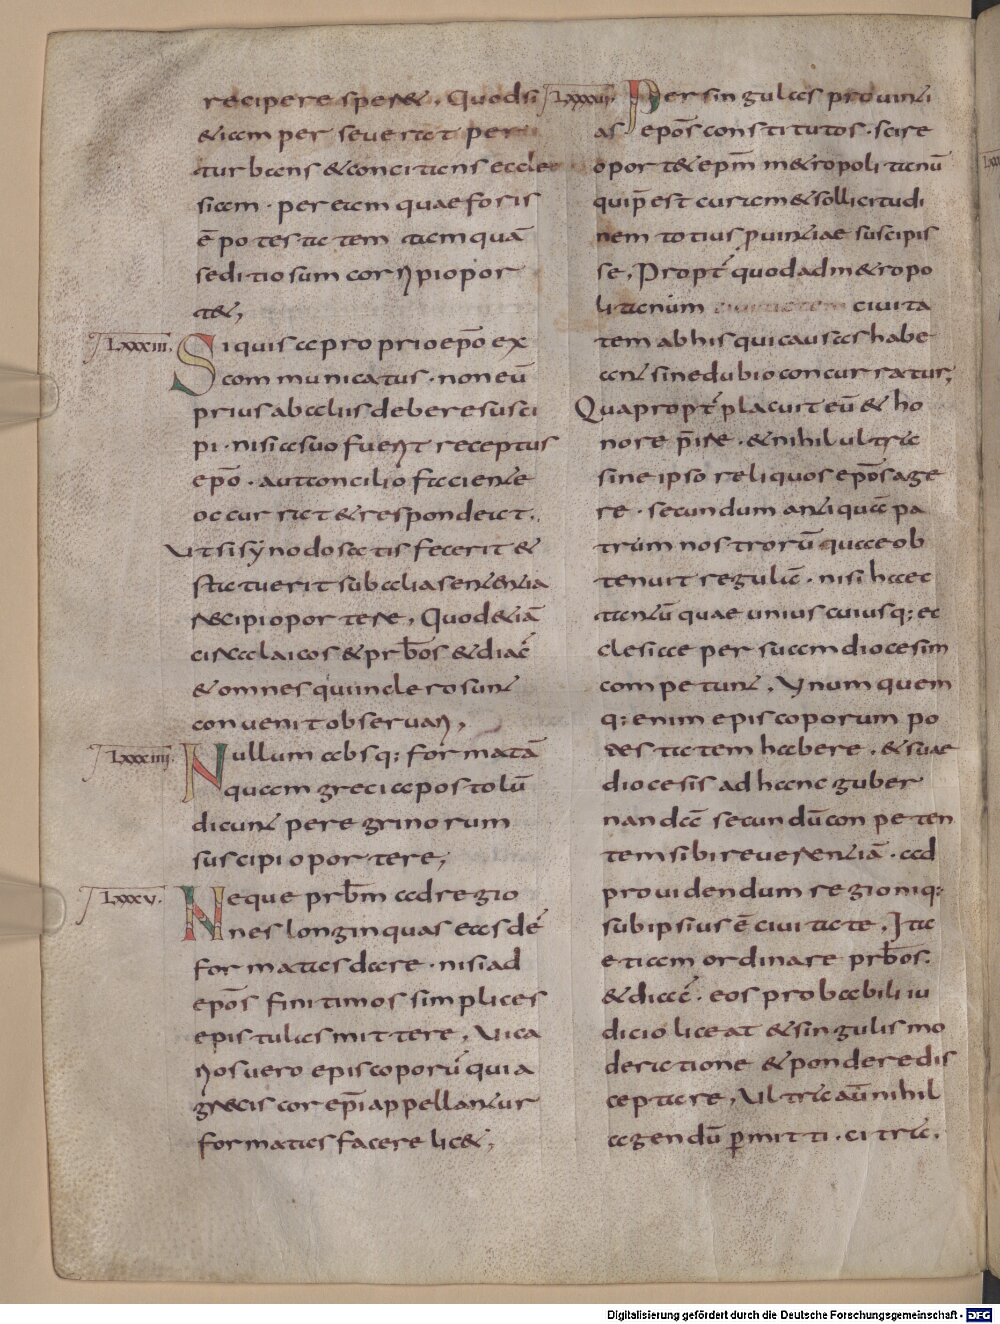 recipere speret. Quod si
etiam per severat per
turbans et concitans eccle
siam · per eam quae foris
ē potestatem tamquā
seditiosum corripi opor
tet,
LXXXIII. Si quis a proprio ep̄o ex
communicatus · non eū
prius ab aliis debere susci
pi · nisi a suo fuerit receptus
ep̄o · aut concilio faciente
occurrat et respondeat.
Ut si synodo satis fecerit et
statuerit sub alia sententia
recipi oportere, Quod etiā
circa laicos et prb̄os et diac̄
et omnes qui in clero sunt
convenit observari,
LXXXIIII. Nullum absq; formatā
quam greci apostolū
dicunt peregrinorum
suscipi oportere,
LXXXV. Neque prb̄m ad regio
nes longinquas eas de
formatas dare · nisi ad
ep̄os finitimos simplices
epistulas mittere, Vica
rios vero episcoporū qui a
grecis corep̄i appellantur
formatas facere licet,
LXXXVI. Per singulas provinti
as ep̄os constitutos · scire
oportet ep̄m metropolitanū
qui p̄est curam et sollicitudi
nem totius provintiae suscipis
se, Propt̄ quod ad metropo
litanum civitatem civita
tem ab his qui causas habe
ant sine dubio concurratur,
Quapropt̄ placuit eū et ho
nore p̄ire · et nihil ultra
sine ipso reliquos ep̄os age
re · secundum antiquā pa
trum nostrorū quae ob
tenuit regulā · nisi haec
tantū quae unius cuiusq; ec
clesiae per suam diocesim
competunt, Unum quem
q; enim episcoporum po
testatem habere · et suae
diocesis ad hanc guber
nandā secundū conpeten
tem sibi reverentiā · ad
providendum regioniq;
sub ipsius ē civitate, Ita
etiam ordinare prb̄os ·
et diac̄ · eos probabili iu
dicio liceat et singulis mo
deratione et pondere dis
ceptare, Ultra aū nihil
agendū p̄mitti · citra.
Digitalisierung gefördert durch die Deutsche Forschungsgemeinschaft - DFG